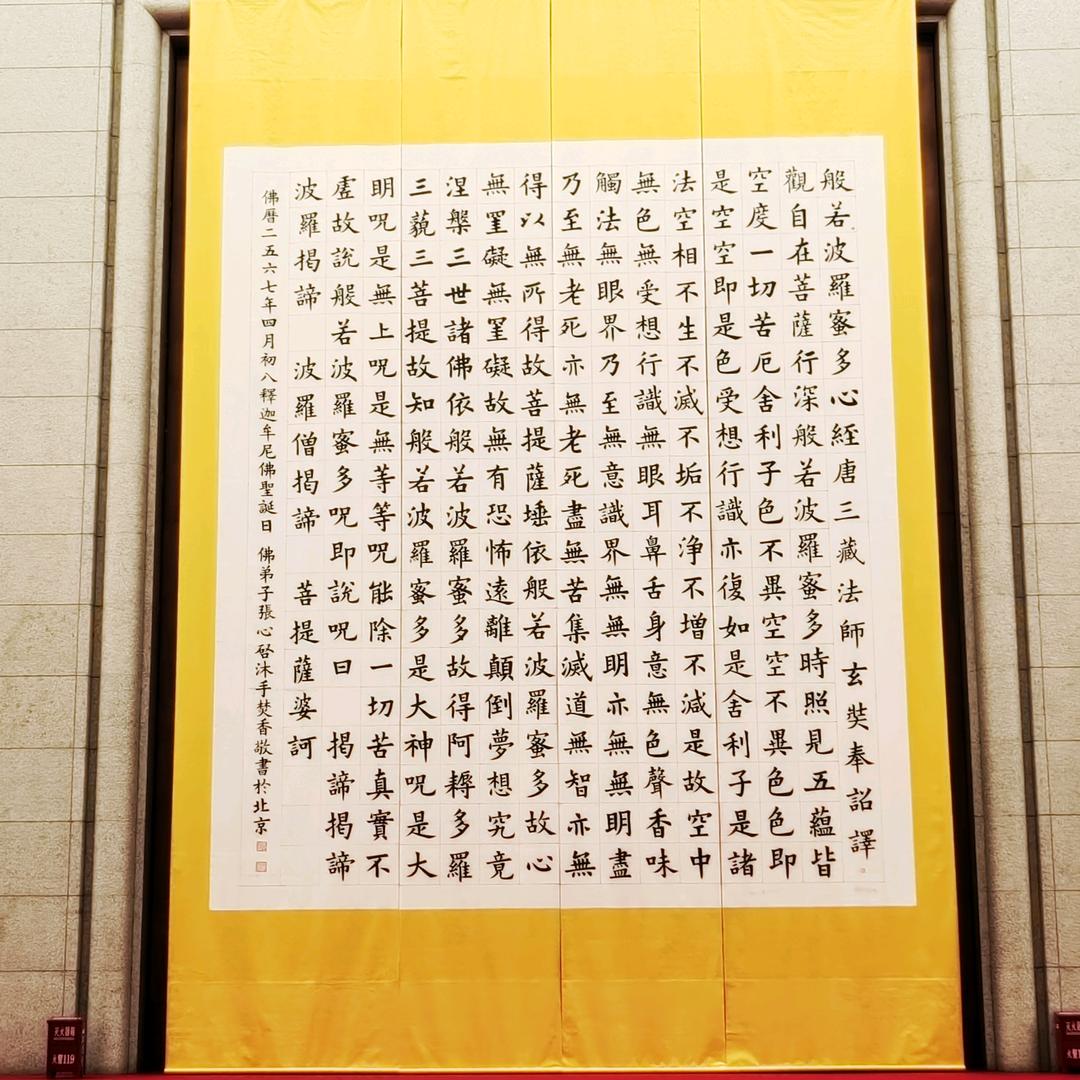 般若波羅蜜多心經唐三藏法師玄奘奉詔譯
觀自在菩薩行深般若波羅蜜多時照見五蘊皆
空度一切苦厄舍利子色不異空空不異色色即
是空空即是色受想行識亦復如是舍利子是諸
法空相不生不滅不垢不淨不增不減是故空中
無色無受想行識無眼耳鼻舌身意無色聲香味
觸法無眼界乃至無意識界無無明亦無無明盡
乃至無老死亦無老死盡無苦集滅道無智亦無
得以無所得故菩提薩埵依般若波羅蜜多故心
無罣礙無罣礙故無有恐怖遠離顛倒夢想究竟
涅槃三世諸佛依般若波羅蜜多故得阿耨多羅
三藐三菩提故知般若波羅蜜多是大神呪是大
明呪是無上呪是無等等呪能除一切苦真實不
虛故說般若波羅蜜多呪即說呪曰 揭諦揭諦
波羅揭諦 波羅僧揭諦 菩提薩婆訶
佛曆二五六七年四月初八釋迦牟尼佛聖誕日 佛弟子張心啓沐手焚香敬書於北京
灭火器箱
火警119